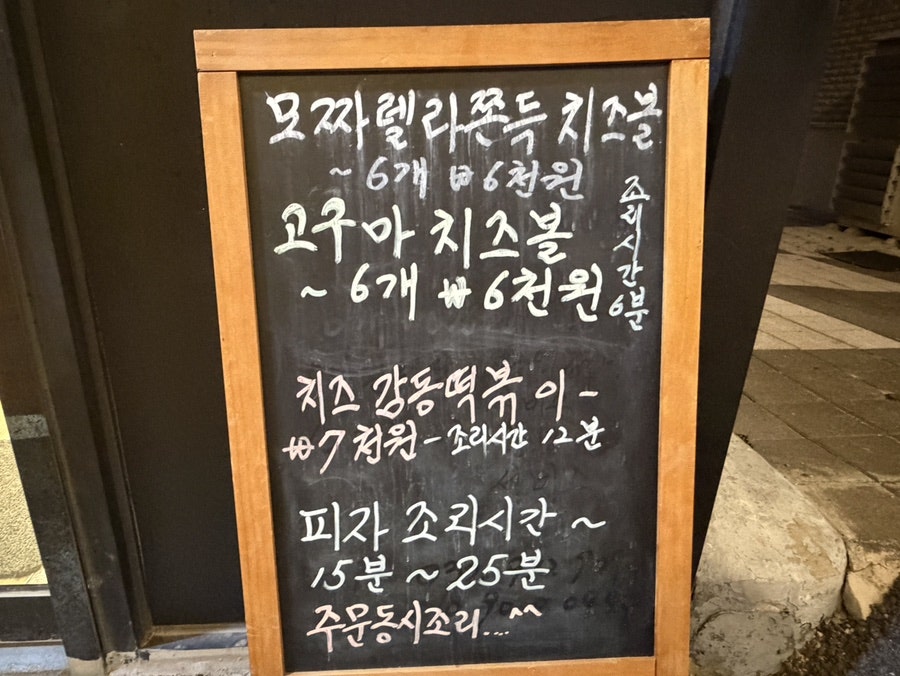 모짜렐라쫀득 치즈볼
~ 6개 ₩6천원
고구마 치즈볼
~ 6개 ₩6천원
조리시간 6분
치즈 감동떡볶이 -
₩7천원 - 조리시간 12분
피자 조리시간 ~
15분 ~ 25분
주문동시조리...^^